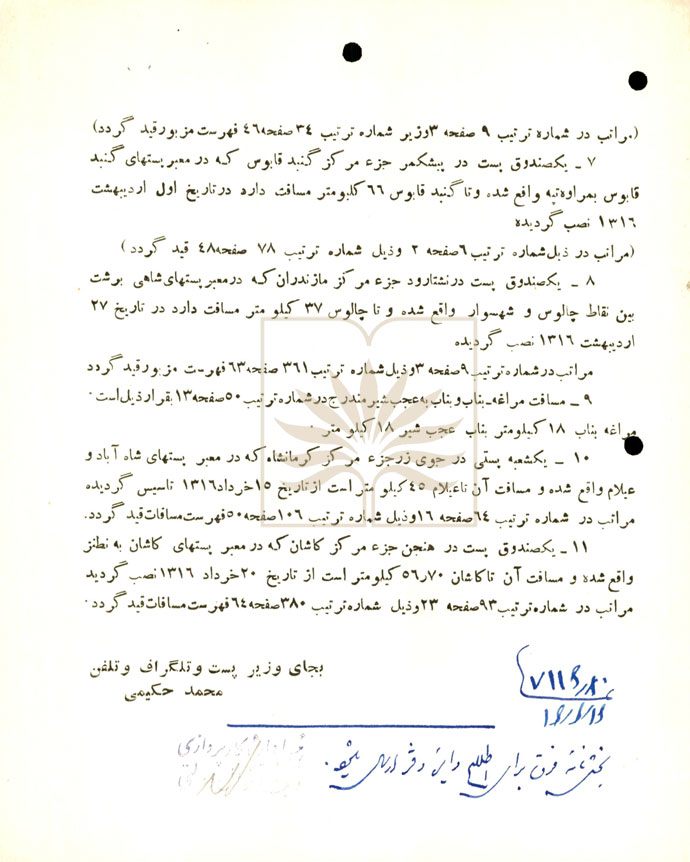 (مراتب در شماره ترتیب ۹ صفحه ۳وزیر شماره ترتیب ۳۴ صفحه۴۶ فهرست مزبورقید گردد)
۷ ـ یکصندوق پست در پیشکمر جزء مرکز گنبد قابوس که در معبر پستهای گنبد
قابوس بمراوه‌تپه واقع شده وتا گنبد قابوس ۶۶ کلیومتر مسافت دارد درتاریخ اول اردیبهشت
۱۳۱۶ نصب گردیده
(مراتب در ذیل شماره ترتیب۶ صفحه ۲ وذیل شماره ترتیب ۷۸ صفحه۴۸ قید گردد )
۸ ـ یکصندوق پست درنشتارود جزء مرکز مازندران که درمعبر پستهای شاهی برشت
بین نقاط چالوس و شهسوار واقع شده و تا چالوس ۳۷ کیلو متر مسافت دارد در تاریخ ۲۷
اردیبهشت ۱۳۱۶ نصب گردیده
مراتب درشماره ترتیب۹ صفحه ۳وذیل شماره ترتیب ۳۶۱ صفحه۶۳ فهرست مزبورقید گردد
۹ ـ مسافت مراغه ـ بناب و بناب به عجب شیر مندرج در شماره ترتیب ۵۰ صفحه۱۳ بقرار ذیل است ۰
مراغه بناب ۱۸ کیلومتر بناب عجب شیر ۱۸ کیلو متر ۰
۱۰ ـ یکشعبه پستی در جوی زر جزء مرکز کرمانشاه که در معبر پستهای شاه آباد و
عیلام واقع شده و مسافت آن تا عیلام ۴۵ کیلو متر است از تاریخ ۱۵خرداد۱۳۱۶ تاسیس گردیده
مراتب در شماره ترتیب ۶۴ صفحه ۱۶ وذیل شماره ترتیب ۱۰۶ صفحه۵۰ فهرست مسافات قید گردد.
۱۱ ـ یکصندوق پست در هنجن جزء مرکز کاشان که در معبر پستهای کاشان به نطنز
واقع شده و مسافت آن تا کاشان ۵۶٫۷۰ کیلومتر است از تاریخ ۲۰ خرداد ۱۳۱۶ نصب گردید
مراتب در شماره ترتیب۹۳ صفحه ۲۳وذیل شماره ترتیب ۳۸۰ صفحه۶۴ فهرست مسافات قید گردد ۰
بجای وزیر پست و تلگراف و تلفن
محمد حکیمی
بخشنامه فوق برای اطلاع